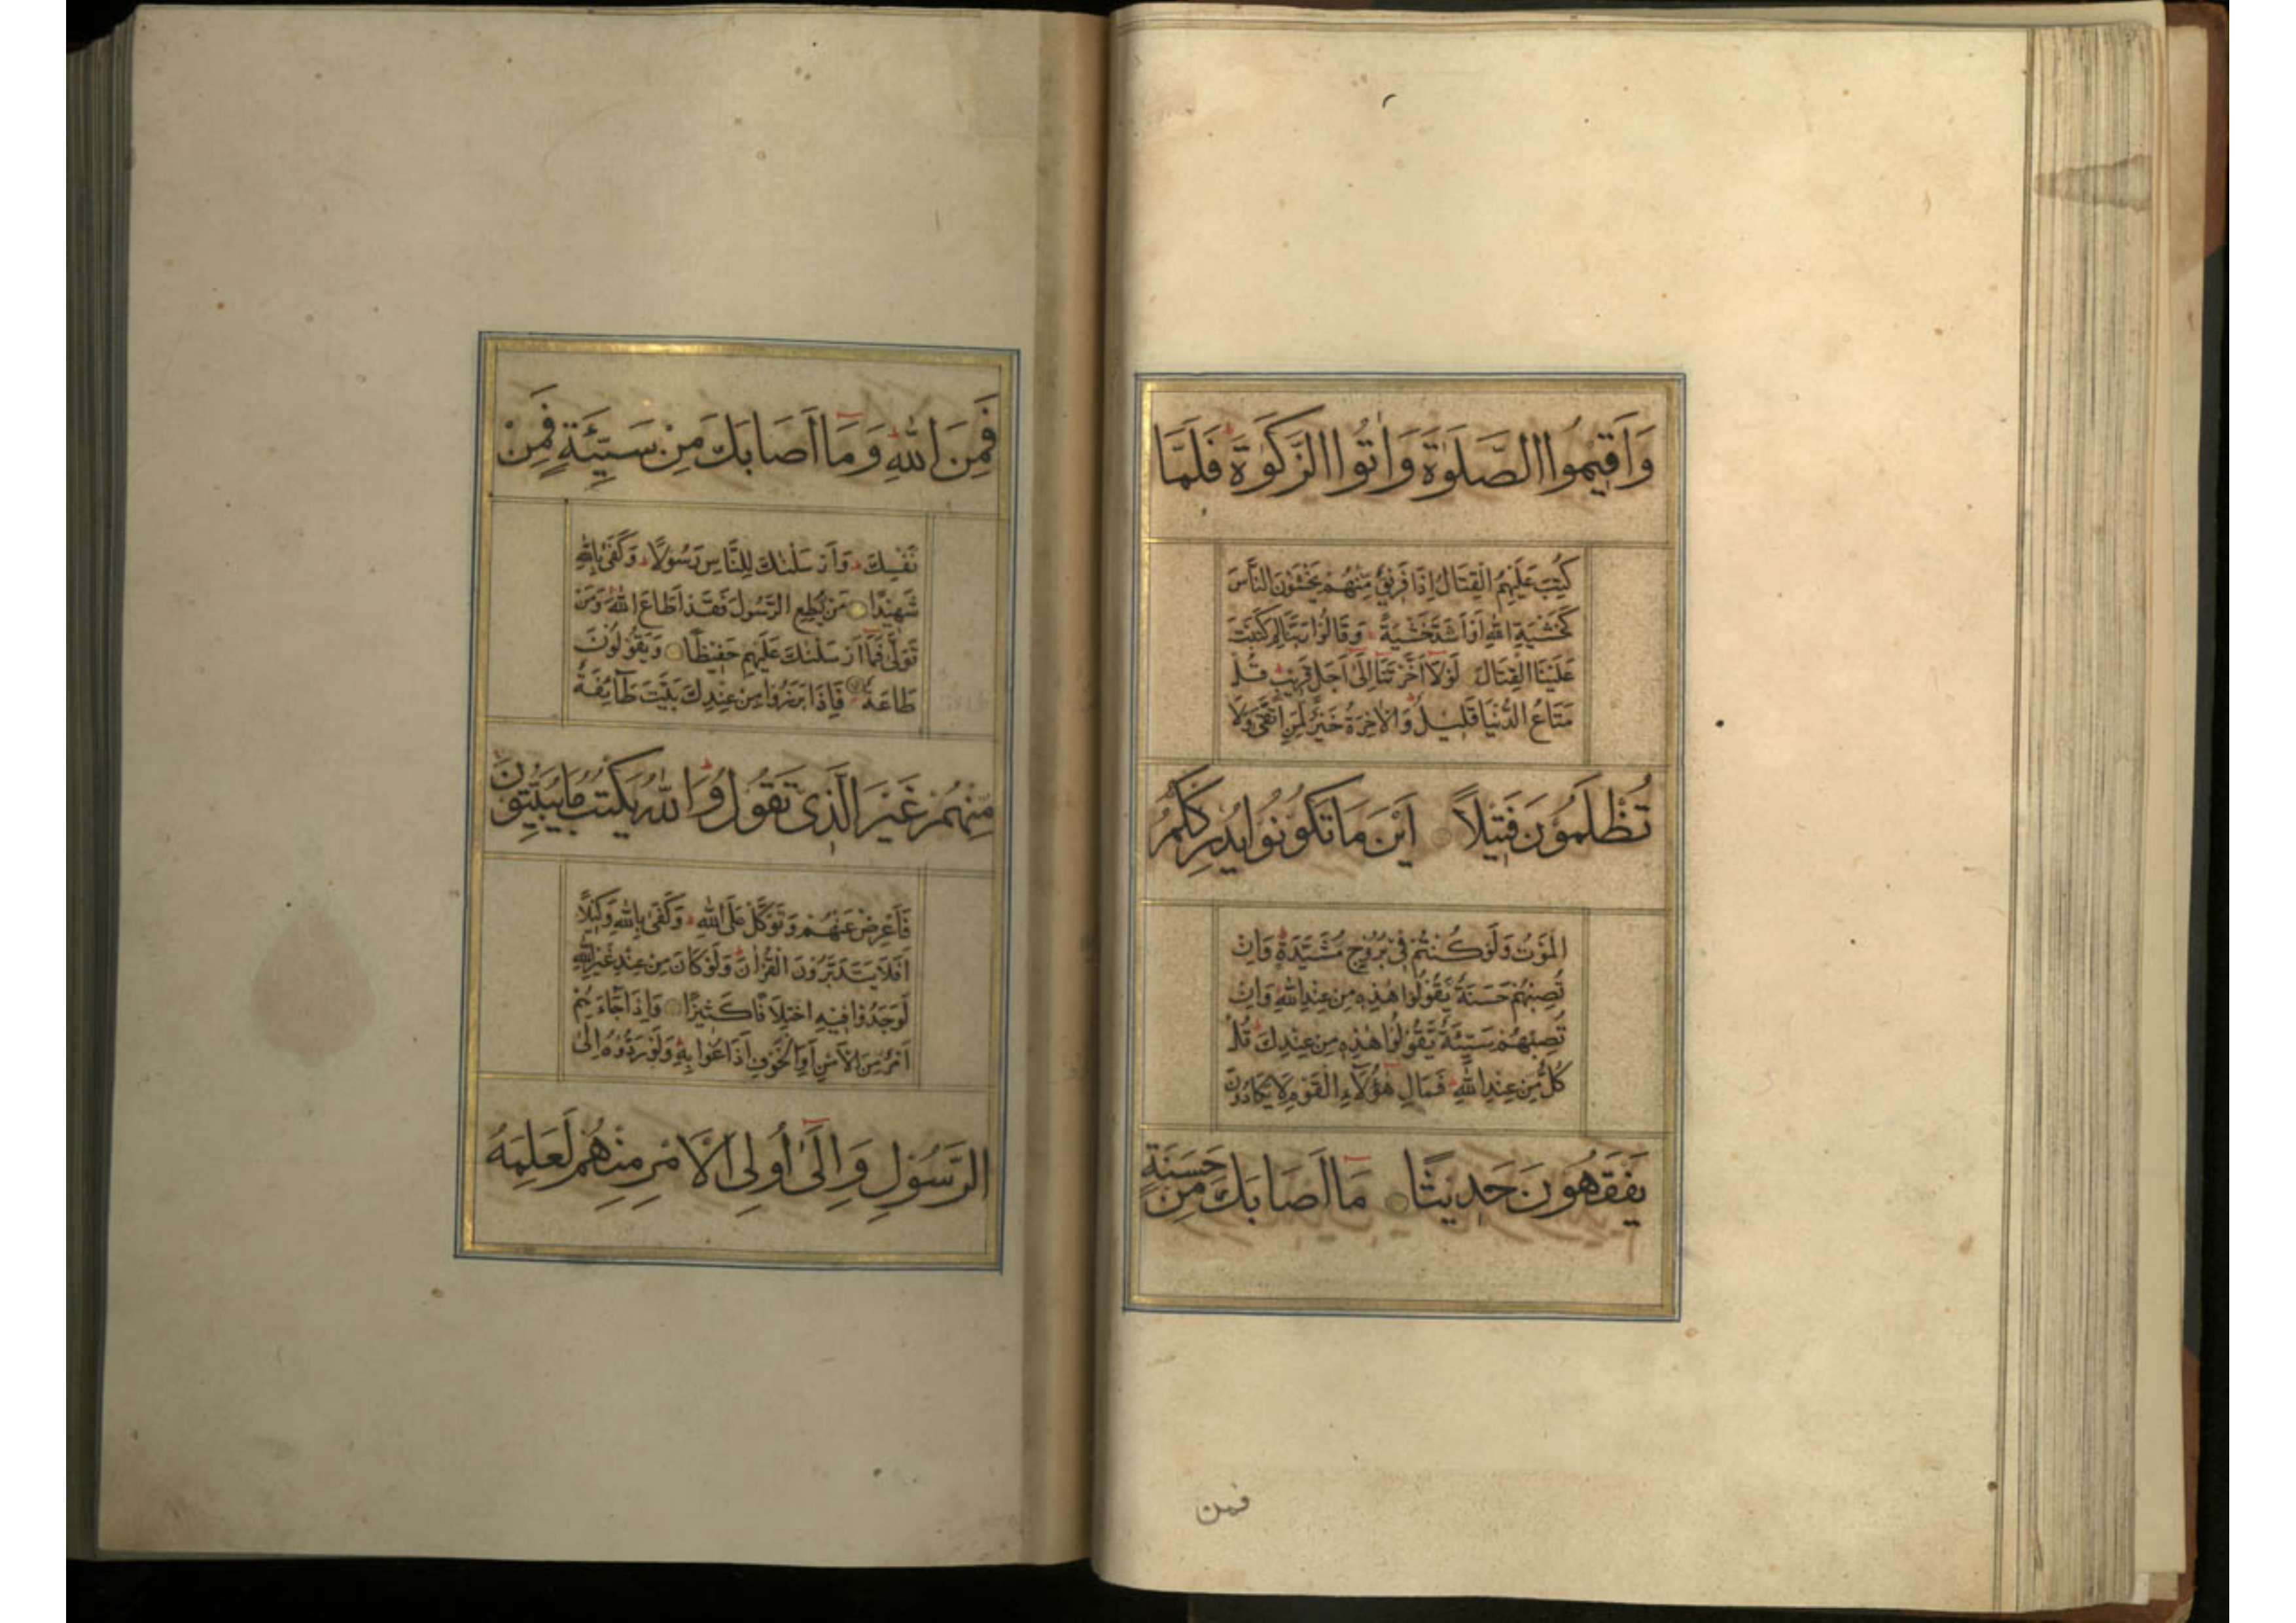 وَاَقِيمُوا الصَّلٰوةَ وَاٰتُوا الزَّكٰوةَ فَلَمَّا
كُتِبَ عَلَيْهِمُ الْقِتَالُ اِذَا فَرِيقٌ مِنْهُمْ يَخْشَوْنَ النَّاسَ
كَخَشْيَةِ اللهِ اَوْ اَشَدَّ خَشْيَةً وَقَالُوا رَبَّنَا لِمَ كَتَبْتَ
عَلَيْنَا الْقِتَالَ لَوْلَا اَخَّرْتَنَا اِلٰى اَجَلٍ قَرِيبٍ قُلْ
مَتَاعُ الدُّنْيَا قَلِيلٌ وَالْاٰخِرَةُ خَيْرٌ لِمَنِ اتَّقٰى وَلَا
تُظْلَمُونَ فَتِيلًا اَيْنَ مَا تَكُونُوا يُدْرِكْكُمُ
الْمَوْتُ وَلَوْ كُنْتُمْ فِي بُرُوجٍ مُشَيَّدَةٍ وَاِنْ
تُصِبْهُمْ حَسَنَةٌ يَقُولُوا هٰذِهِ مِنْ عِنْدِ اللهِ وَاِنْ
تُصِبْهُمْ سَيِّئَةٌ يَقُولُوا هٰذِهِ مِنْ عِنْدِكَ قُلْ
كُلٌّ مِنْ عِنْدِ اللهِ فَمَالِ هٰؤُلَاءِ الْقَوْمِ لَا يَكَادُونَ
يَفْقَهُونَ حَدِيثًا مَا اَصَابَكَ مِنْ حَسَنَةٍ
فمن
فَمِنَ اللهِ وَمَا اَصَابَكَ مِنْ سَيِّئَةٍ فَمِنْ
نَفْسِكَ وَاَرْسَلْنٰكَ لِلنَّاسِ رَسُولًا وَكَفٰى بِاللهِ
شَهِيدًا مَنْ يُطِعِ الرَّسُولَ فَقَدْ اَطَاعَ اللهَ وَمَنْ
تَوَلّٰى فَمَا اَرْسَلْنٰكَ عَلَيْهِمْ حَفِيظًا وَيَقُولُونَ
طَاعَةٌ فَاِذَا بَرَزُوا مِنْ عِنْدِكَ بَيَّتَ طَآئِفَةٌ
مِنْهُمْ غَيْرَ الَّذِي تَقُولُ وَاللهُ يَكْتُبُ مَا يُبَيِّتُونَ
فَاَعْرِضْ عَنْهُمْ وَتَوَكَّلْ عَلَى اللهِ وَكَفٰى بِاللهِ وَكِيلًا
اَفَلَا يَتَدَبَّرُونَ الْقُرْاٰنَ وَلَوْ كَانَ مِنْ عِنْدِ غَيْرِ اللهِ
لَوَجَدُوا فِيهِ اخْتِلَافًا كَثِيرًا وَاِذَا جَآءَهُمْ
اَمْرٌ مِنَ الْاَمْنِ اَوِ الْخَوْفِ اَذَاعُوا بِهِ وَلَوْ رَدُّوهُ اِلَى
الرَّسُولِ وَاِلٰى اُولِي الْاَمْرِ مِنْهُمْ لَعَلِمَهُ